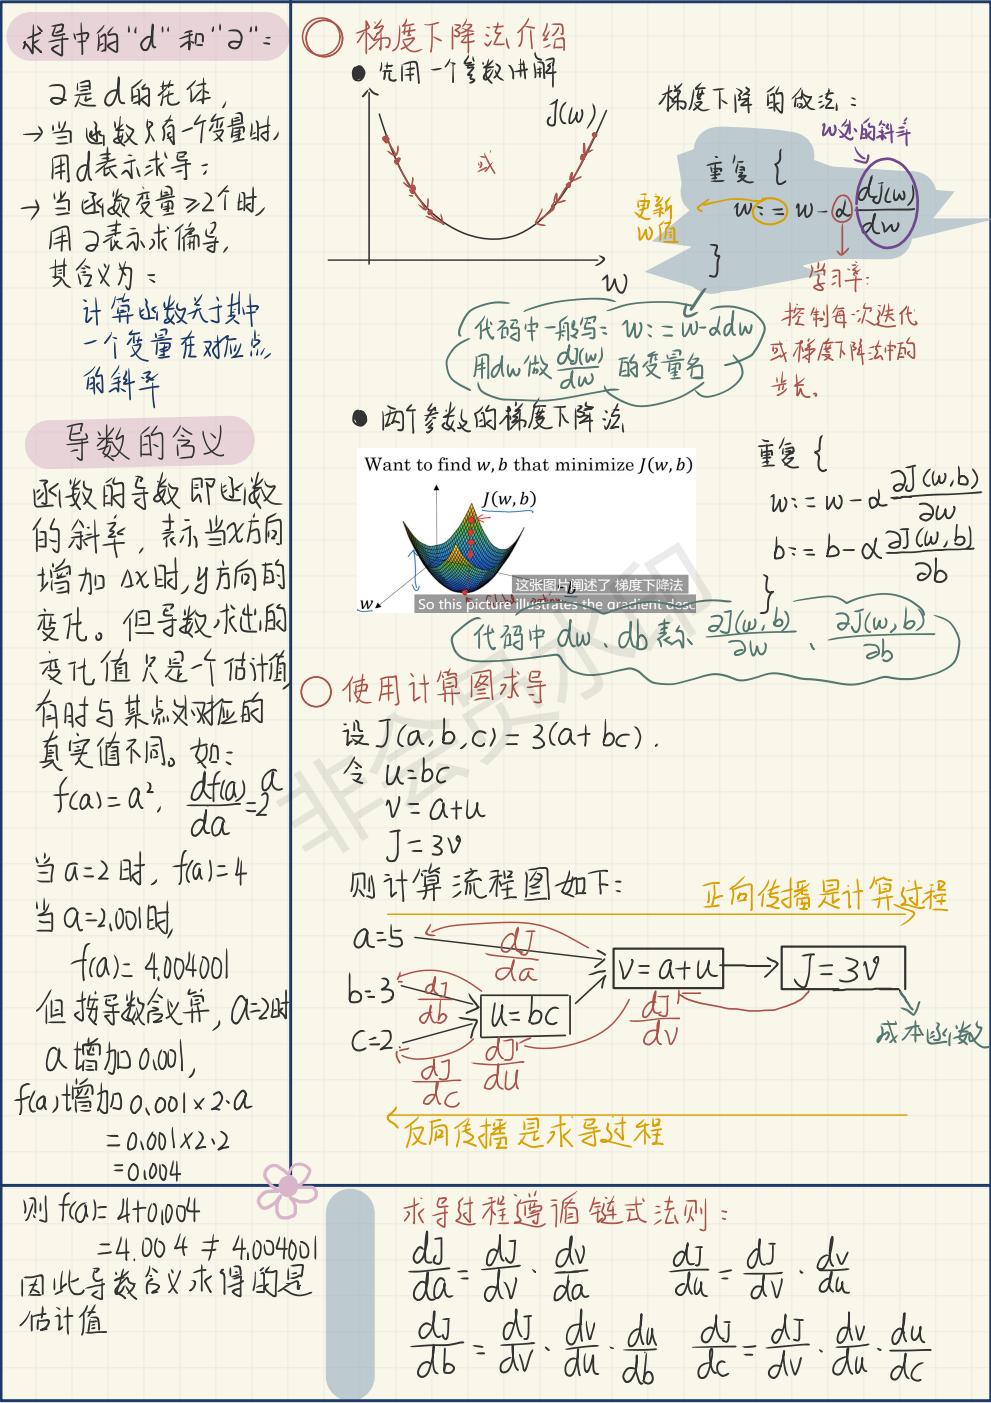 求导中的“d”和“∂”:
∂是d的花体,
→当函数只有一个变量时,
用d表示求导;
→当函数变量≥2个时,
用∂表示求偏导,
其含义为:
计算函数关于其中
一个变量在对应点
的斜率
导数的含义
函数的导数即函数
的斜率,表示当x方向
增加Δx时,y方向的
变化。但导数求出的
变化值只是一个估计值,
有时与某点处对应的
真实值不同。如:
f(a)=a², df(a)/da=2a
当a=2时, f(a)=4
当a=2.001时,
f(a)=4.004001
但按导数含义算,a=2时
a增加0.001,
f(a)增加0.001×2·a
=0.001×2·2
=0.004
则f(a)=4+0.004
=4.004≠4.004001
因此导数含义求得的是
估计值
梯度下降法介绍
●先用一个参数讲解
J(w)
或
w
梯度下降的做法:
w处的斜率
重复{
w:=w-α dJ(w)/dw
}
更新
w值
学习率:
控制每次迭代
或梯度下降法中的
步长。
代码中一般写:w:=w-αdw
用dw做 dJ(w)/dw 的变量名
●两个参数的梯度下降法
Want to find w,b that minimize J(w,b)
J(w,b)
这张图片阐述了 梯度下降法
w
b
So this picture illustrates the gradient desc
重复{
w:=w-α ∂J(w,b)/∂w
b:=b-α ∂J(w,b)/∂b
}
代码中dw、db表示 ∂J(w,b)/∂w、∂J(w,b)/∂b
使用计算图求导
设J(a,b,c)=3(a+bc).
令u=bc
v=a+u
J=3v
则计算流程图如下:
正向传播是计算过程
a=5
dJ/da
v=a+u
J=3v
b=3
dJ/db
u=bc
dJ/dv
c=2
dJ/dc
dJ/du
成本函数
反向传播是求导过程
求导过程遵循链式法则:
dJ/da=dJ/dv·dv/da dJ/du=dJ/dv·dv/du
dJ/db=dJ/dv·dv/du·du/db dJ/dc=dJ/dv·dv/du·du/dc
非会员水印